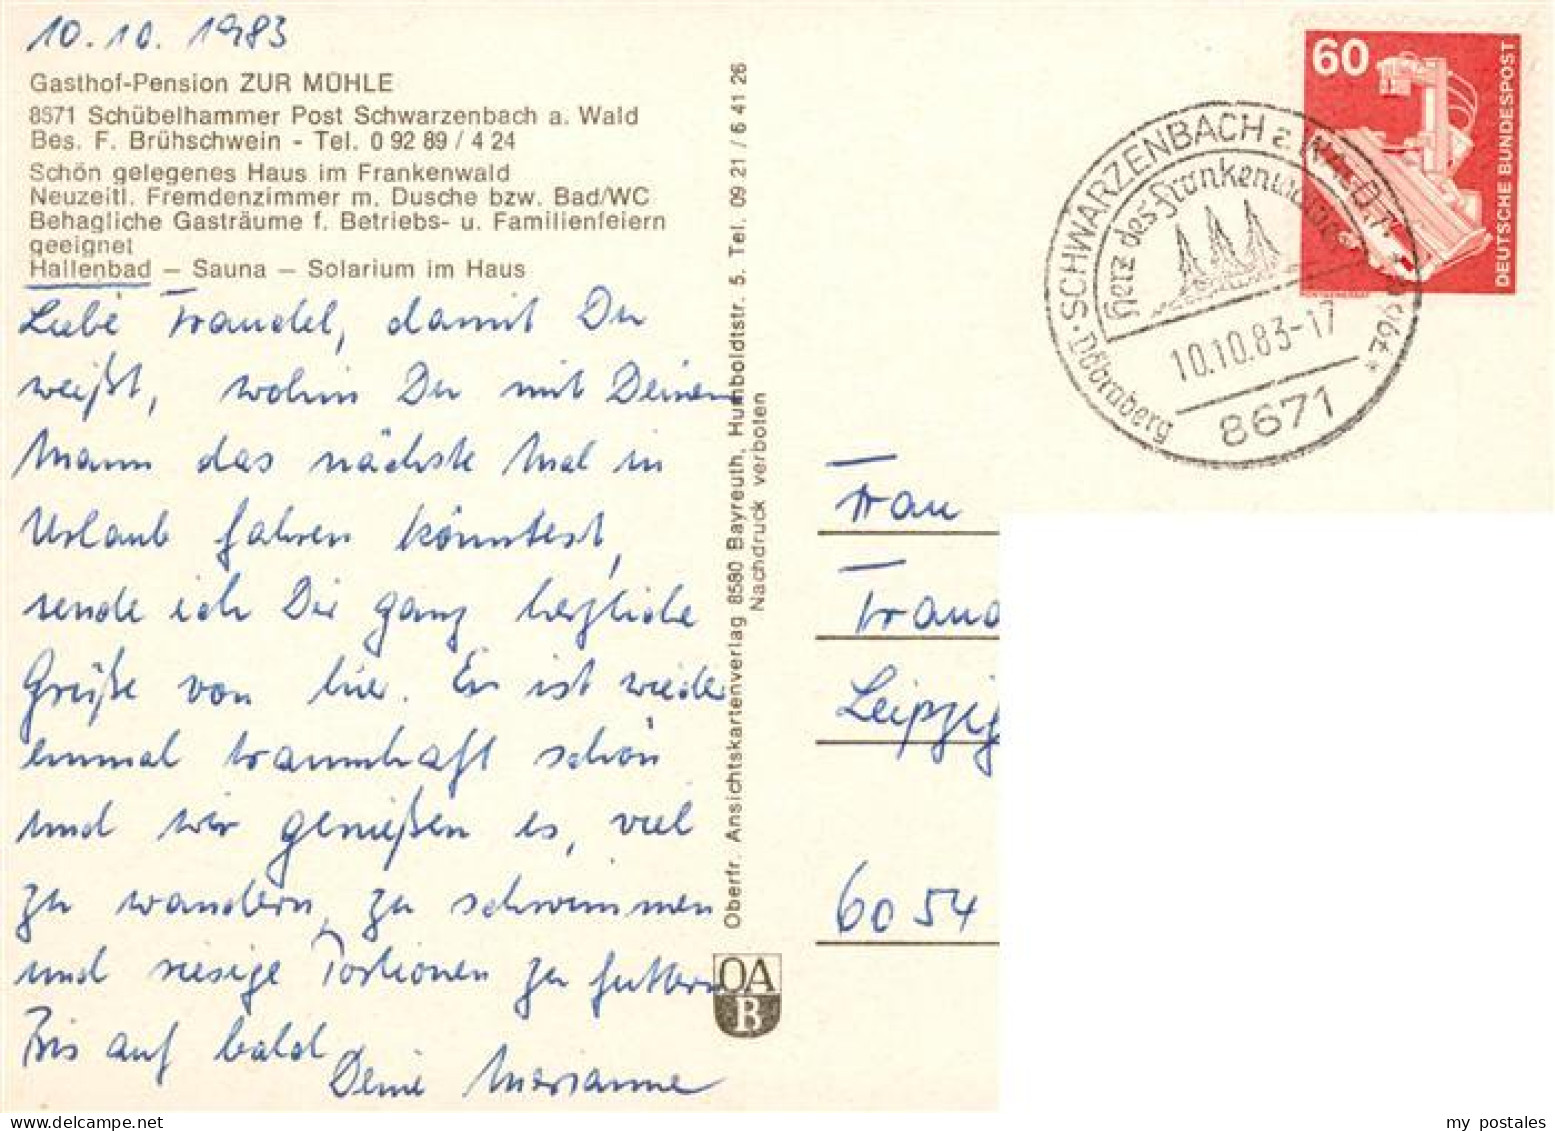 10.10.1983
Gasthof-Pension ZUR MÜHLE
8671 Schübelhammer Post Schwarzenbach a. Wald
Bes. F. Brühschwein - Tel. 0 92 89 / 4 24
Schön gelegenes Haus im Frankenwald
Neuzeitl. Fremdenzimmer m. Dusche bzw. Bad/WC
Behagliche Gasträume f. Betriebs- u. Familienfeiern
geeignet
Hallenbad – Sauna – Solarium im Haus
Liebe Traudel, damit Du
weißt, wohin Du mit Deinem
Mann das nächste Mal in
Urlaub fahren könntest,
sende ich Dir ganz herzliche
Grüße von hier. Es ist wieder
einmal traumhaft schön
und wir genießen es, viel
zu wandern, zu schwimmen
und riesige Portionen zu futtern
Bis auf bald
Deine Marianne
Oberfr. Ansichtskartenverlag 8580 Bayreuth, Humboldtstr. 5. Tel. 09 21 / 6 41 26
Nachdruck verboten
OA
B
60
DEUTSCHE BUNDESPOST
SCHWARZENBACH a. WALD
Herz des Frankenwaldes
10.10.83-17
8671
Döbraberg
Frau
Traud
Leipzig
6054
my postales